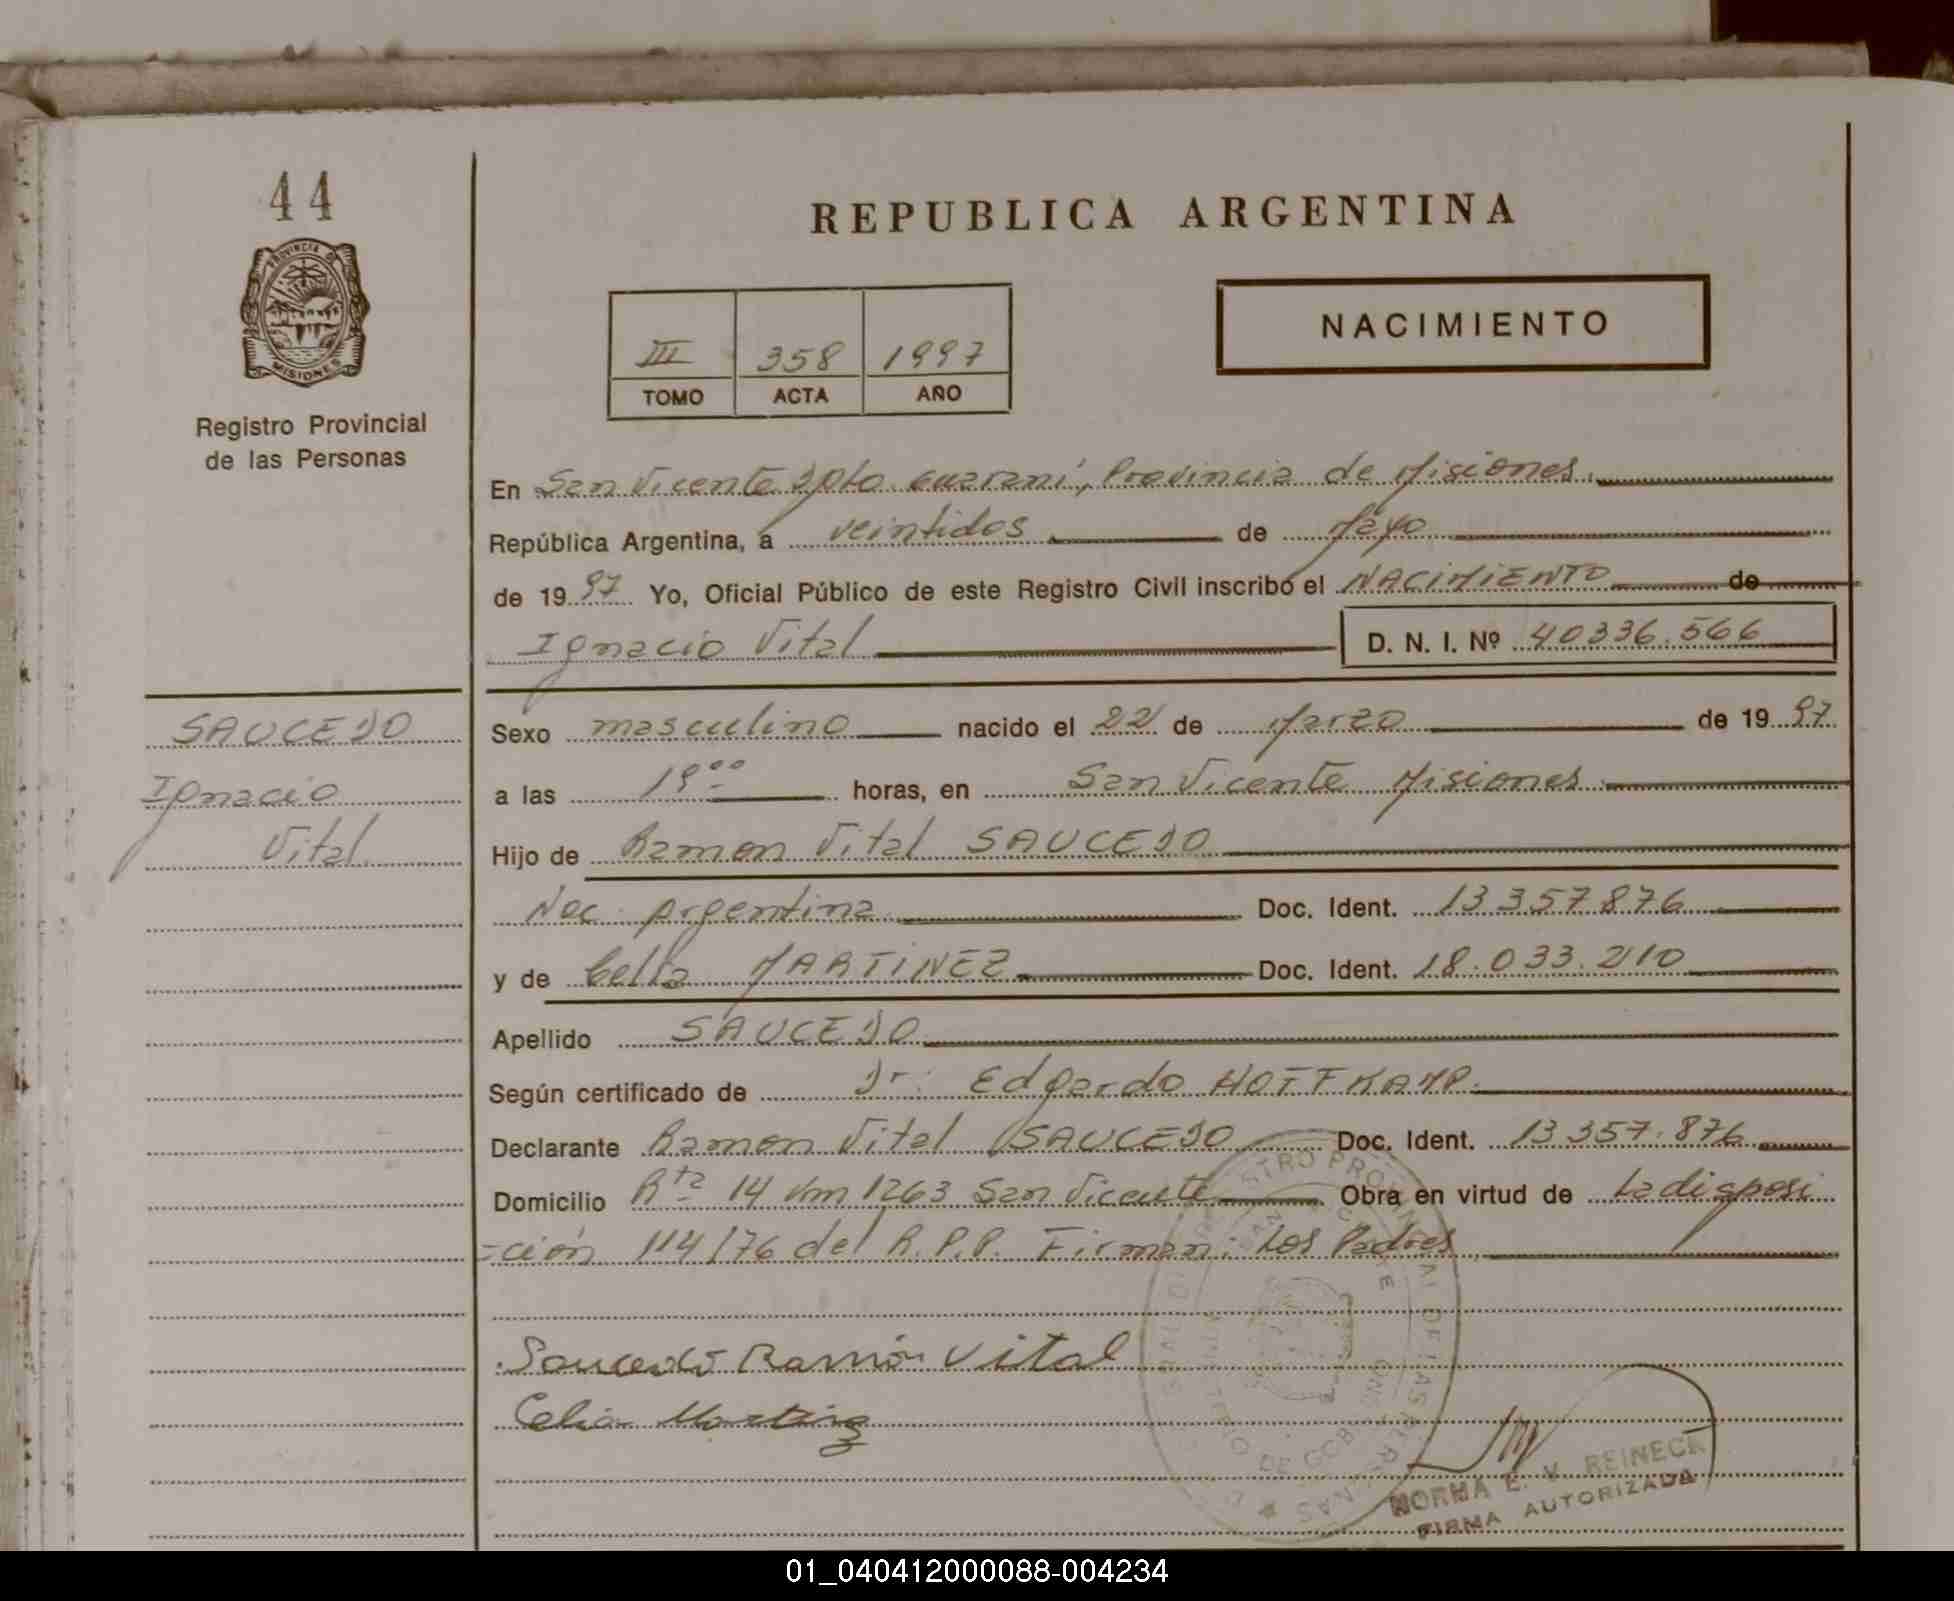 44
PROVINCIA DE
MISIONES
Registro Provincial
de las Personas
REPUBLICA ARGENTINA
III 358 1997
TOMO ACTA AÑO
NACIMIENTO
En San Vicente Dpto. Guaraní, Provincia de Misiones.
República Argentina, a veintidos de Mayo
de 1997 Yo, Oficial Público de este Registro Civil inscribo el NACIMIENTO de
Ignacio Vital D. N. I. Nº 40336.566
SAUCEDO
Ignacio
Vital
Sexo masculino nacido el 22 de Marzo de 1997
a las 19⁰⁰ horas, en San Vicente Misiones.
Hijo de Ramon Vital SAUCEDO
Nac. Argentina Doc. Ident. 13 357 876
y de Celia MARTINEZ Doc. Ident. 18.033.210
Apellido SAUCEDO
Según certificado de Dr. Edgardo HOFFKAMP.
Declarante Ramon Vital SAUCEDO Doc. Ident. 13 357.876
Domicilio Rta 14 Km 1263 San Vicente Obra en virtud de La disposi
-ción 114/76 del R.P.P. Firman: Los Padres
Saucedo Ramón Vital
Celia Martinez
NORMA E. V. REINECK
FIRMA AUTORIZADA
01_040412000088-004234